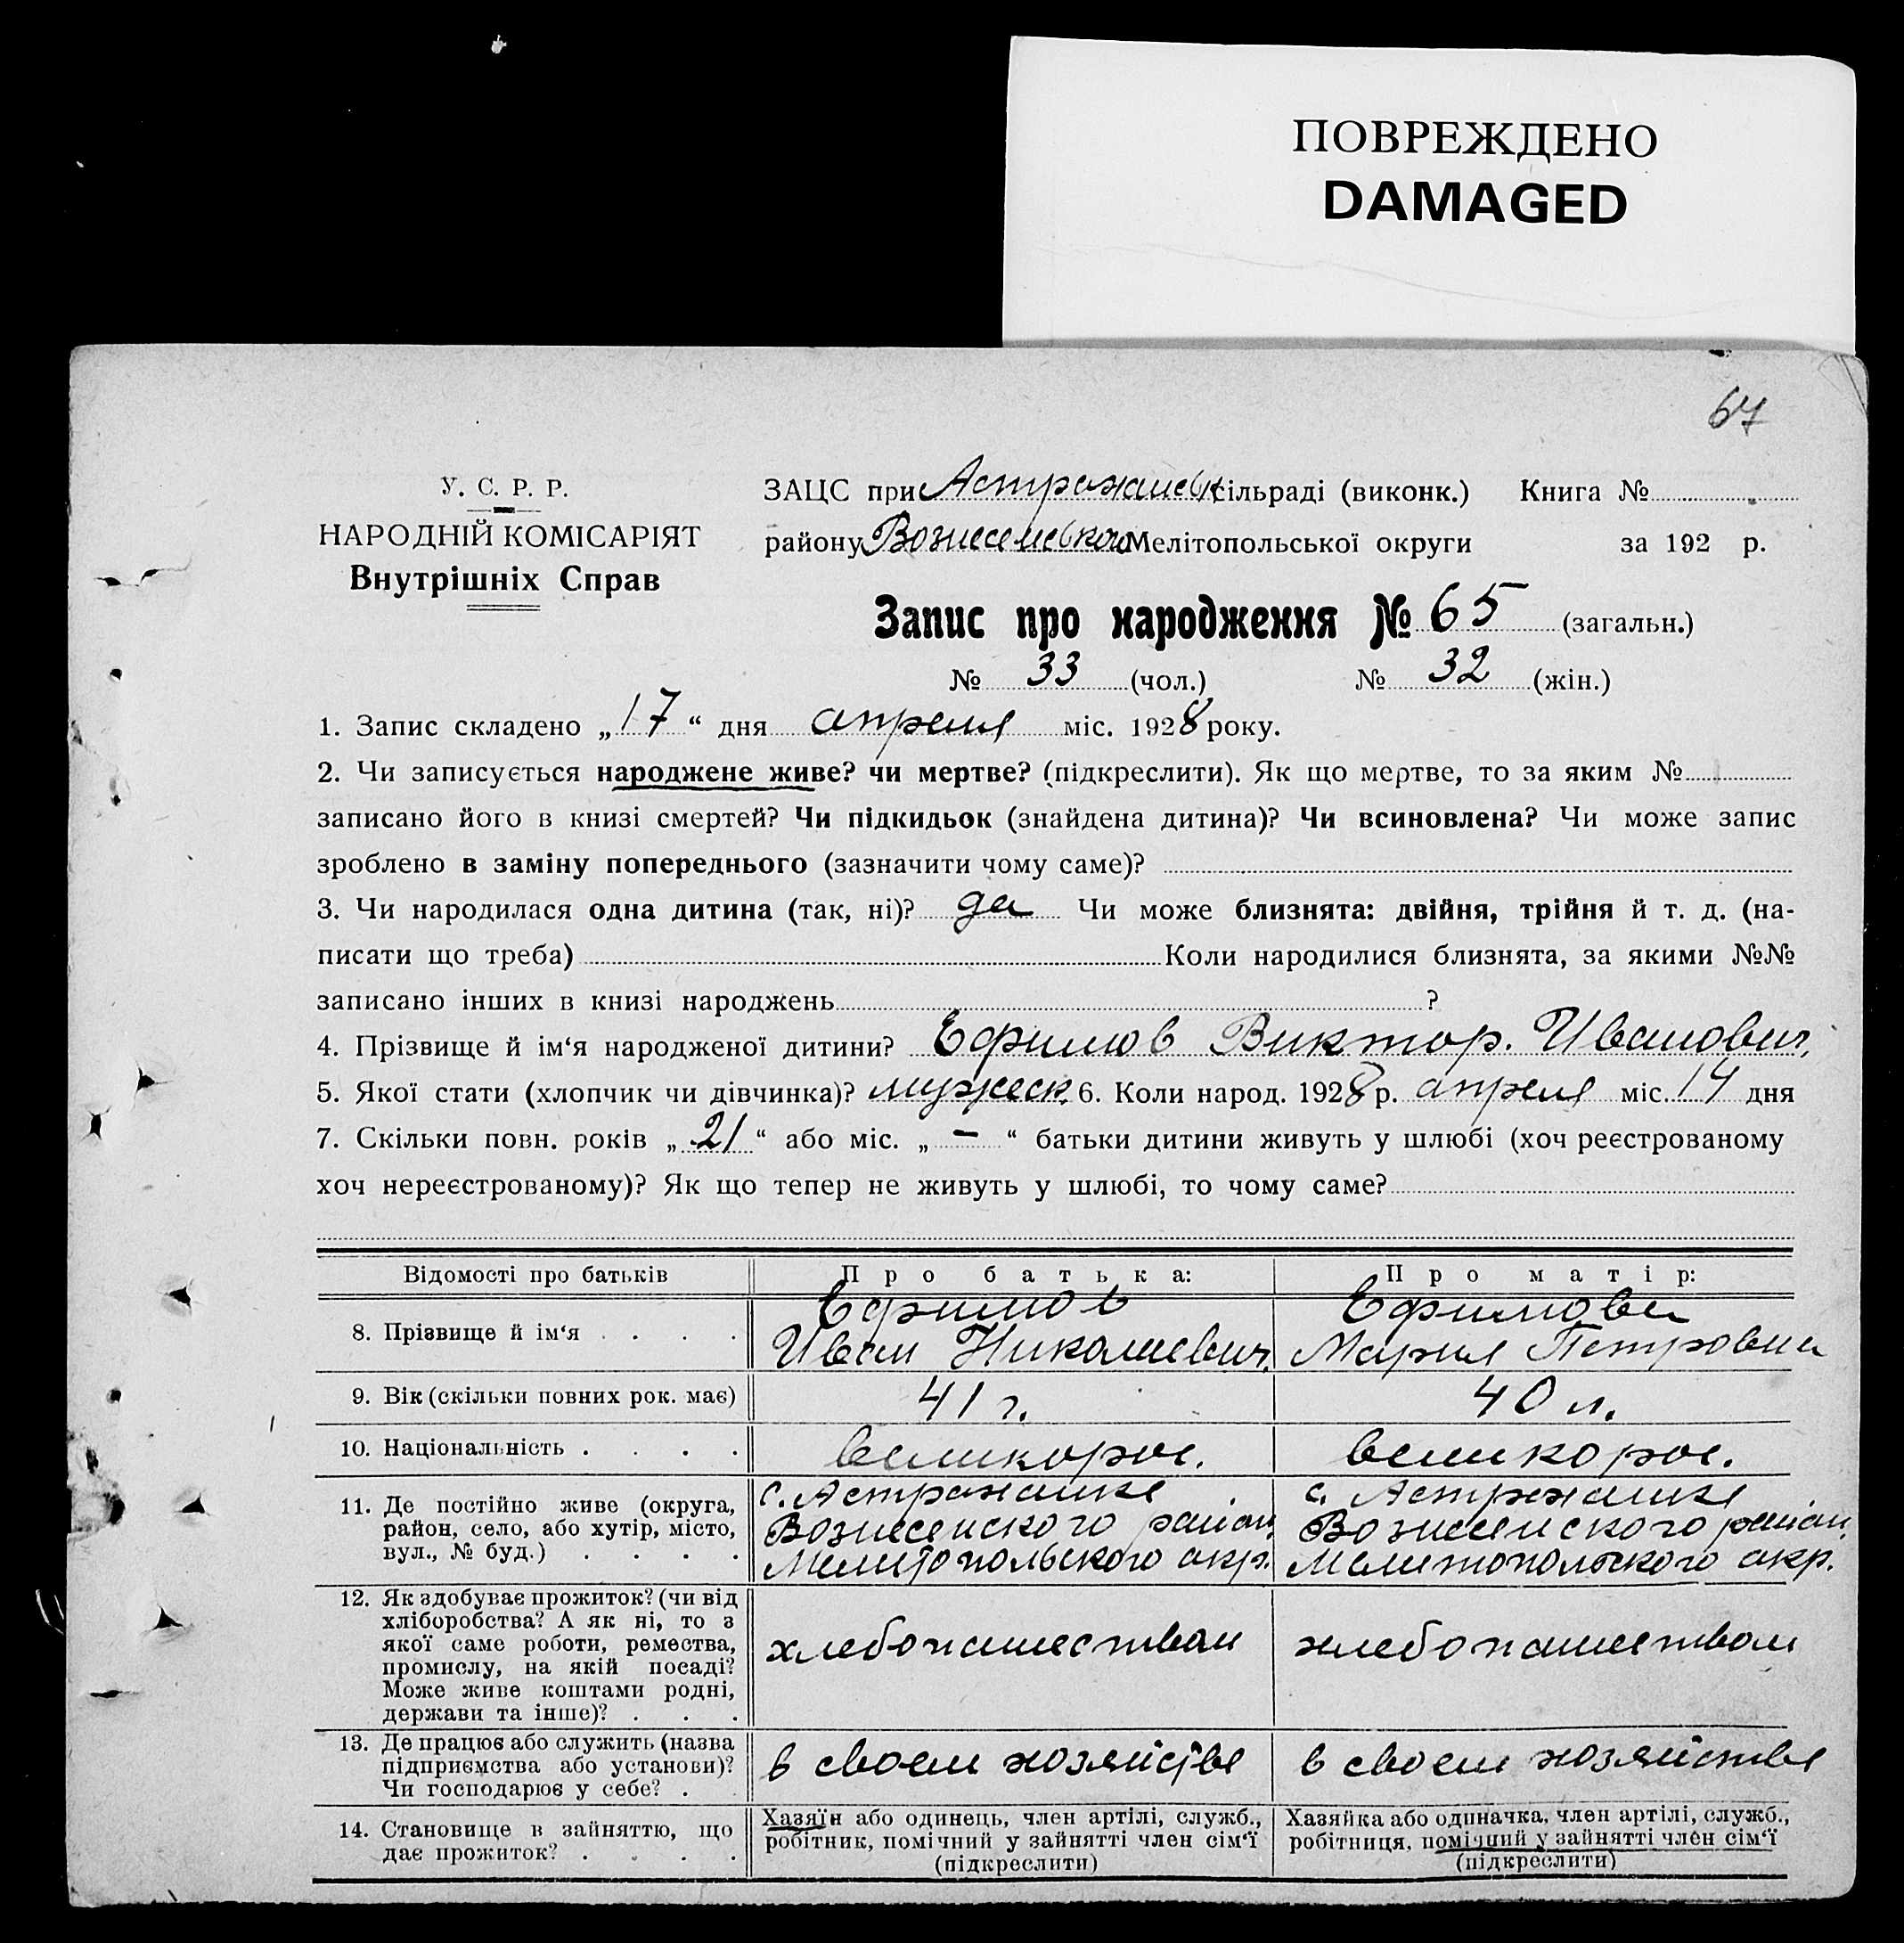 ПОВРЕЖДЕНО
DAMAGED
67
У. С. Р. Р.
НАРОДНІЙ КОМІСАРІЯТ
Внутрішніх Справ
ЗАЦС при Астраханськ сільраді (виконк.) Книга №
району Вознесенського Мелітопольської округи за 192 р.
Запис про народження № 65 (загальн.)
№ 33 (чол.) № 32 (жін.)
1. Запис складено „ 17 “ дня апреля міс. 1928 року.
2. Чи записується народжене живе? чи мертве? (підкреслити). Як що мертве, то за яким №
записано його в книзі смертей? Чи підкидьок (знайдена дитина)? Чи всиновлена? Чи може запис
зроблено в заміну попереднього (зазначити чому саме)?
3. Чи народилася одна дитина (так, ні)? да Чи може близнята: двійня, трійня й т. д. (на-
писати що треба) Коли народилися близнята, за якими №№
записано інших в книзі народжень ?
4. Прізвище й ім‘я народженої дитини? Ефимов Виктор. Иванович,
5. Якої стати (хлопчик чи дівчинка)? мужеск. 6. Коли народ. 1928 р. апреля міс. 14 дня
7. Скільки повн. років „ 21 “ або міс. „ – “ батьки дитини живуть у шлюбі (хоч реєстрованому
хоч нереєстрованому)? Як що тепер не живуть у шлюбі, то чому саме?
Відомості про батьків Про батька: Про матір:
8. Прізвище й ім‘я . . . .
Ефимов
Иван Николаевич.
Ефимова
Мария Петровна
9. Вік (скільки повних рок. має) 41 г. 40 л.
10. Національність . . . . великорос. великорос.
11. Де постійно живе (округа,
район, село, або хутір, місто,
вул., № буд.) . . . .
с. Астраханке
Вознесенского район.
Мелитопольского окр.
с. Астраханке
Вознесенского район.
Мелитопольского окр.
12. Як здобуває прожиток? (чи від
хліборобства? А як ні, то з
якої саме роботи, ремества,
промислу, на якій посаді?
Може живе коштами родні,
держави та інше)? . . .
хлебопашеством
хлебопашеством
13. Де працює або служить (назва
підприємства або установи)?
Чи господарює у себе? .
в своем хозяйстве
в своем хозяйстве
14. Становище в зайняттю, що
дає прожиток? . . . .
Хазяїн або одинець, член артілі, служб.,
робітник, помічний у зайнятті член сім‘ї
(підкреслити)
Хазяйка або одиначка, член артілі, служб.,
робітниця, помічний у зайнятті член сім‘ї
(підкреслити)